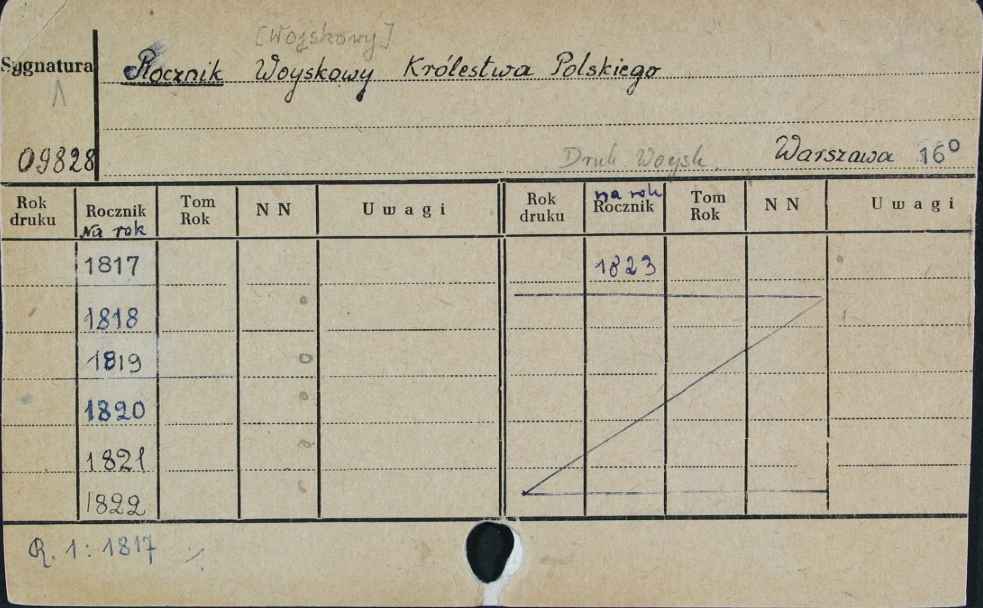 [Wojskowy]
Sygnatura
Rocznik Woyskowy Królestwa Polskiego
09828
Druk Woysk. Warszawa 16⁰
Rok druku Rocznik Na rok Tom Rok NN Uwagi Rok druku na rok Rocznik Tom Rok NN Uwagi
1817 1823
1818
1819
1820
1821
1822
R. 1: 1817